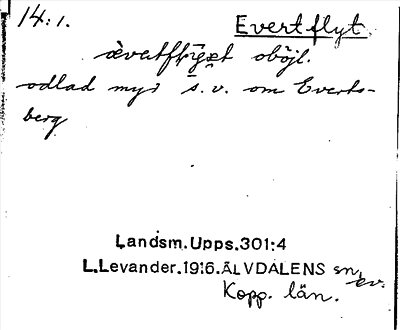 14:1. Evertflyt.
odlad myr s.v. om Everts-
berg
Landsm.Upps.301:4
L.Levander.1916.ÄLVDALENS sn, ev.
Kopp. län.